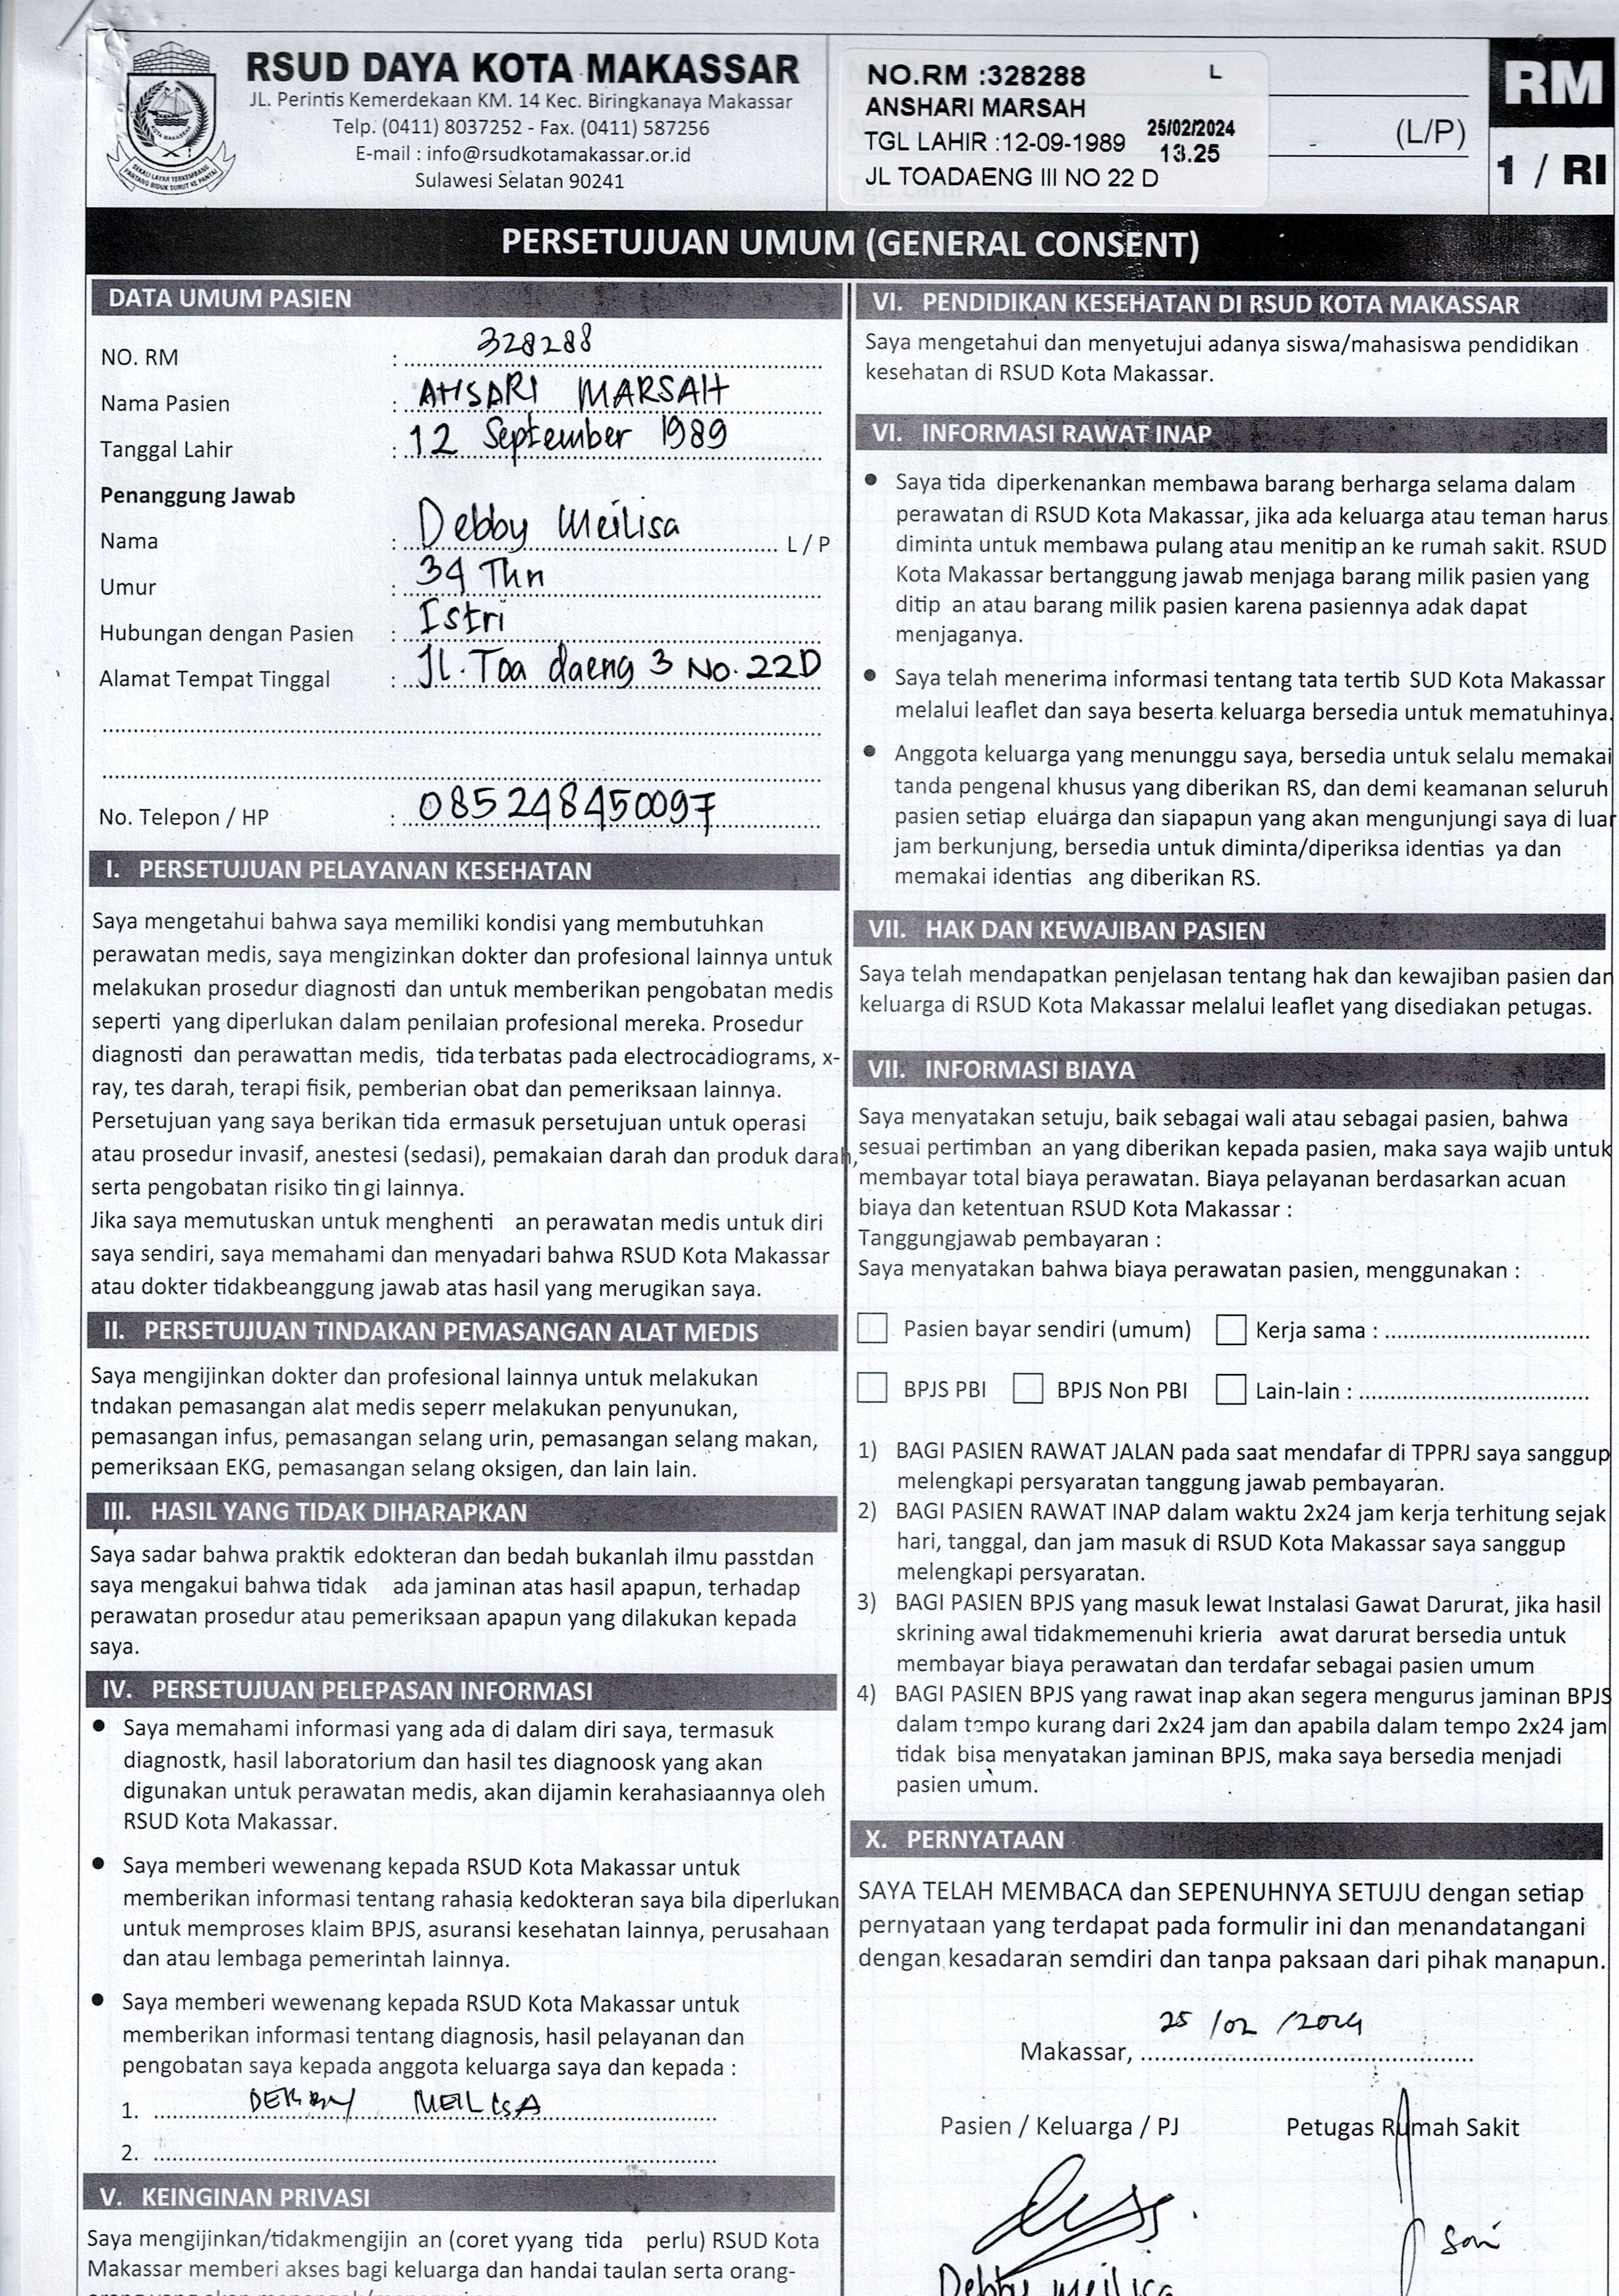 RSUD DAYA KOTA MAKASSAR
JL. Perintis Kemerdekaan KM. 14 Kec. Biringkanaya Makassar
Telp. (0411) 8037252 - Fax. (0411) 587256
E-mail : info@rsudkotamakassar.or.id
Sulawesi Selatan 90241
NO.RM :328288 L
ANSHARI MARSAH
TGL LAHIR :12-09-1989 25/02/2024
13.25
JL TOADAENG III NO 22 D
(L/P)
RM
1 / RI
PERSETUJUAN UMUM (GENERAL CONSENT)
DATA UMUM PASIEN
NO. RM : 328288
Nama Pasien : AHSARI MARSAH
Tanggal Lahir : 12 September 1989
Penanggung Jawab
Nama : Debby Meilisa L / P
Umur : 34 Thn
Hubungan dengan Pasien : Istri
Alamat Tempat Tinggal : Jl. Toa daeng 3 No. 22D
No. Telepon / HP : 085248450097
I. PERSETUJUAN PELAYANAN KESEHATAN
Saya mengetahui bahwa saya memiliki kondisi yang membutuhkan
perawatan medis, saya mengizinkan dokter dan profesional lainnya untuk
melakukan prosedur diagnosti dan untuk memberikan pengobatan medis
seperti yang diperlukan dalam penilaian profesional mereka. Prosedur
diagnosti dan perawattan medis, tida terbatas pada electrocadiograms, x-
ray, tes darah, terapi fisik, pemberian obat dan pemeriksaan lainnya.
Persetujuan yang saya berikan tida ermasuk persetujuan untuk operasi
atau prosedur invasif, anestesi (sedasi), pemakaian darah dan produk darah,
serta pengobatan risiko tin gi lainnya.
Jika saya memutuskan untuk menghenti an perawatan medis untuk diri
saya sendiri, saya memahami dan menyadari bahwa RSUD Kota Makassar
atau dokter tidakbeanggung jawab atas hasil yang merugikan saya.
II. PERSETUJUAN TINDAKAN PEMASANGAN ALAT MEDIS
Saya mengijinkan dokter dan profesional lainnya untuk melakukan
tndakan pemasangan alat medis seperr melakukan penyunukan,
pemasangan infus, pemasangan selang urin, pemasangan selang makan,
pemeriksaan EKG, pemasangan selang oksigen, dan lain lain.
III. HASIL YANG TIDAK DIHARAPKAN
Saya sadar bahwa praktik edokteran dan bedah bukanlah ilmu passtdan
saya mengakui bahwa tidak ada jaminan atas hasil apapun, terhadap
perawatan prosedur atau pemeriksaan apapun yang dilakukan kepada
saya.
IV. PERSETUJUAN PELEPASAN INFORMASI
● Saya memahami informasi yang ada di dalam diri saya, termasuk
diagnostk, hasil laboratorium dan hasil tes diagnoosk yang akan
digunakan untuk perawatan medis, akan dijamin kerahasiaannya oleh
RSUD Kota Makassar.
● Saya memberi wewenang kepada RSUD Kota Makassar untuk
memberikan informasi tentang rahasia kedokteran saya bila diperlukan
untuk memproses klaim BPJS, asuransi kesehatan lainnya, perusahaan
dan atau lembaga pemerintah lainnya.
● Saya memberi wewenang kepada RSUD Kota Makassar untuk
memberikan informasi tentang diagnosis, hasil pelayanan dan
pengobatan saya kepada anggota keluarga saya dan kepada :
1. DEBBY MEILISA
2.
V. KEINGINAN PRIVASI
Saya mengijinkan/tidakmengijin an (coret yyang tida perlu) RSUD Kota
Makassar memberi akses bagi keluarga dan handai taulan serta orang-
VI. PENDIDIKAN KESEHATAN DI RSUD KOTA MAKASSAR
Saya mengetahui dan menyetujui adanya siswa/mahasiswa pendidikan
kesehatan di RSUD Kota Makassar.
VI. INFORMASI RAWAT INAP
● Saya tida diperkenankan membawa barang berharga selama dalam
perawatan di RSUD Kota Makassar, jika ada keluarga atau teman harus
diminta untuk membawa pulang atau menitip an ke rumah sakit. RSUD
Kota Makassar bertanggung jawab menjaga barang milik pasien yang
ditip an atau barang milik pasien karena pasiennya adak dapat
menjaganya.
● Saya telah menerima informasi tentang tata tertib SUD Kota Makassar
melalui leaflet dan saya beserta keluarga bersedia untuk mematuhinya.
● Anggota keluarga yang menunggu saya, bersedia untuk selalu memakai
tanda pengenal khusus yang diberikan RS, dan demi keamanan seluruh
pasien setiap eluarga dan siapapun yang akan mengunjungi saya di luar
jam berkunjung, bersedia untuk diminta/diperiksa identias ya dan
memakai identias ang diberikan RS.
VII. HAK DAN KEWAJIBAN PASIEN
Saya telah mendapatkan penjelasan tentang hak dan kewajiban pasien dan
keluarga di RSUD Kota Makassar melalui leaflet yang disediakan petugas.
VII. INFORMASI BIAYA
Saya menyatakan setuju, baik sebagai wali atau sebagai pasien, bahwa
sesuai pertimban an yang diberikan kepada pasien, maka saya wajib untuk
membayar total biaya perawatan. Biaya pelayanan berdasarkan acuan
biaya dan ketentuan RSUD Kota Makassar :
Tanggungjawab pembayaran :
Saya menyatakan bahwa biaya perawatan pasien, menggunakan :
Pasien bayar sendiri (umum) Kerja sama :
BPJS PBI BPJS Non PBI Lain-lain :
1) BAGI PASIEN RAWAT JALAN pada saat mendafar di TPPRJ saya sanggup
melengkapi persyaratan tanggung jawab pembayaran.
2) BAGI PASIEN RAWAT INAP dalam waktu 2x24 jam kerja terhitung sejak
hari, tanggal, dan jam masuk di RSUD Kota Makassar saya sanggup
melengkapi persyaratan.
3) BAGI PASIEN BPJS yang masuk lewat Instalasi Gawat Darurat, jika hasil
skrining awal tidakmemenuhi krieria awat darurat bersedia untuk
membayar biaya perawatan dan terdafar sebagai pasien umum
4) BAGI PASIEN BPJS yang rawat inap akan segera mengurus jaminan BPJS
dalam tempo kurang dari 2x24 jam dan apabila dalam tempo 2x24 jam
tidak bisa menyatakan jaminan BPJS, maka saya bersedia menjadi
pasien umum.
X. PERNYATAAN
SAYA TELAH MEMBACA dan SEPENUHNYA SETUJU dengan setiap
pernyataan yang terdapat pada formulir ini dan menandatangani
dengan kesadaran semdiri dan tanpa paksaan dari pihak manapun.
Makassar, 25/02/2024
Pasien / Keluarga / PJ Petugas Rumah Sakit
Debby Meilisa